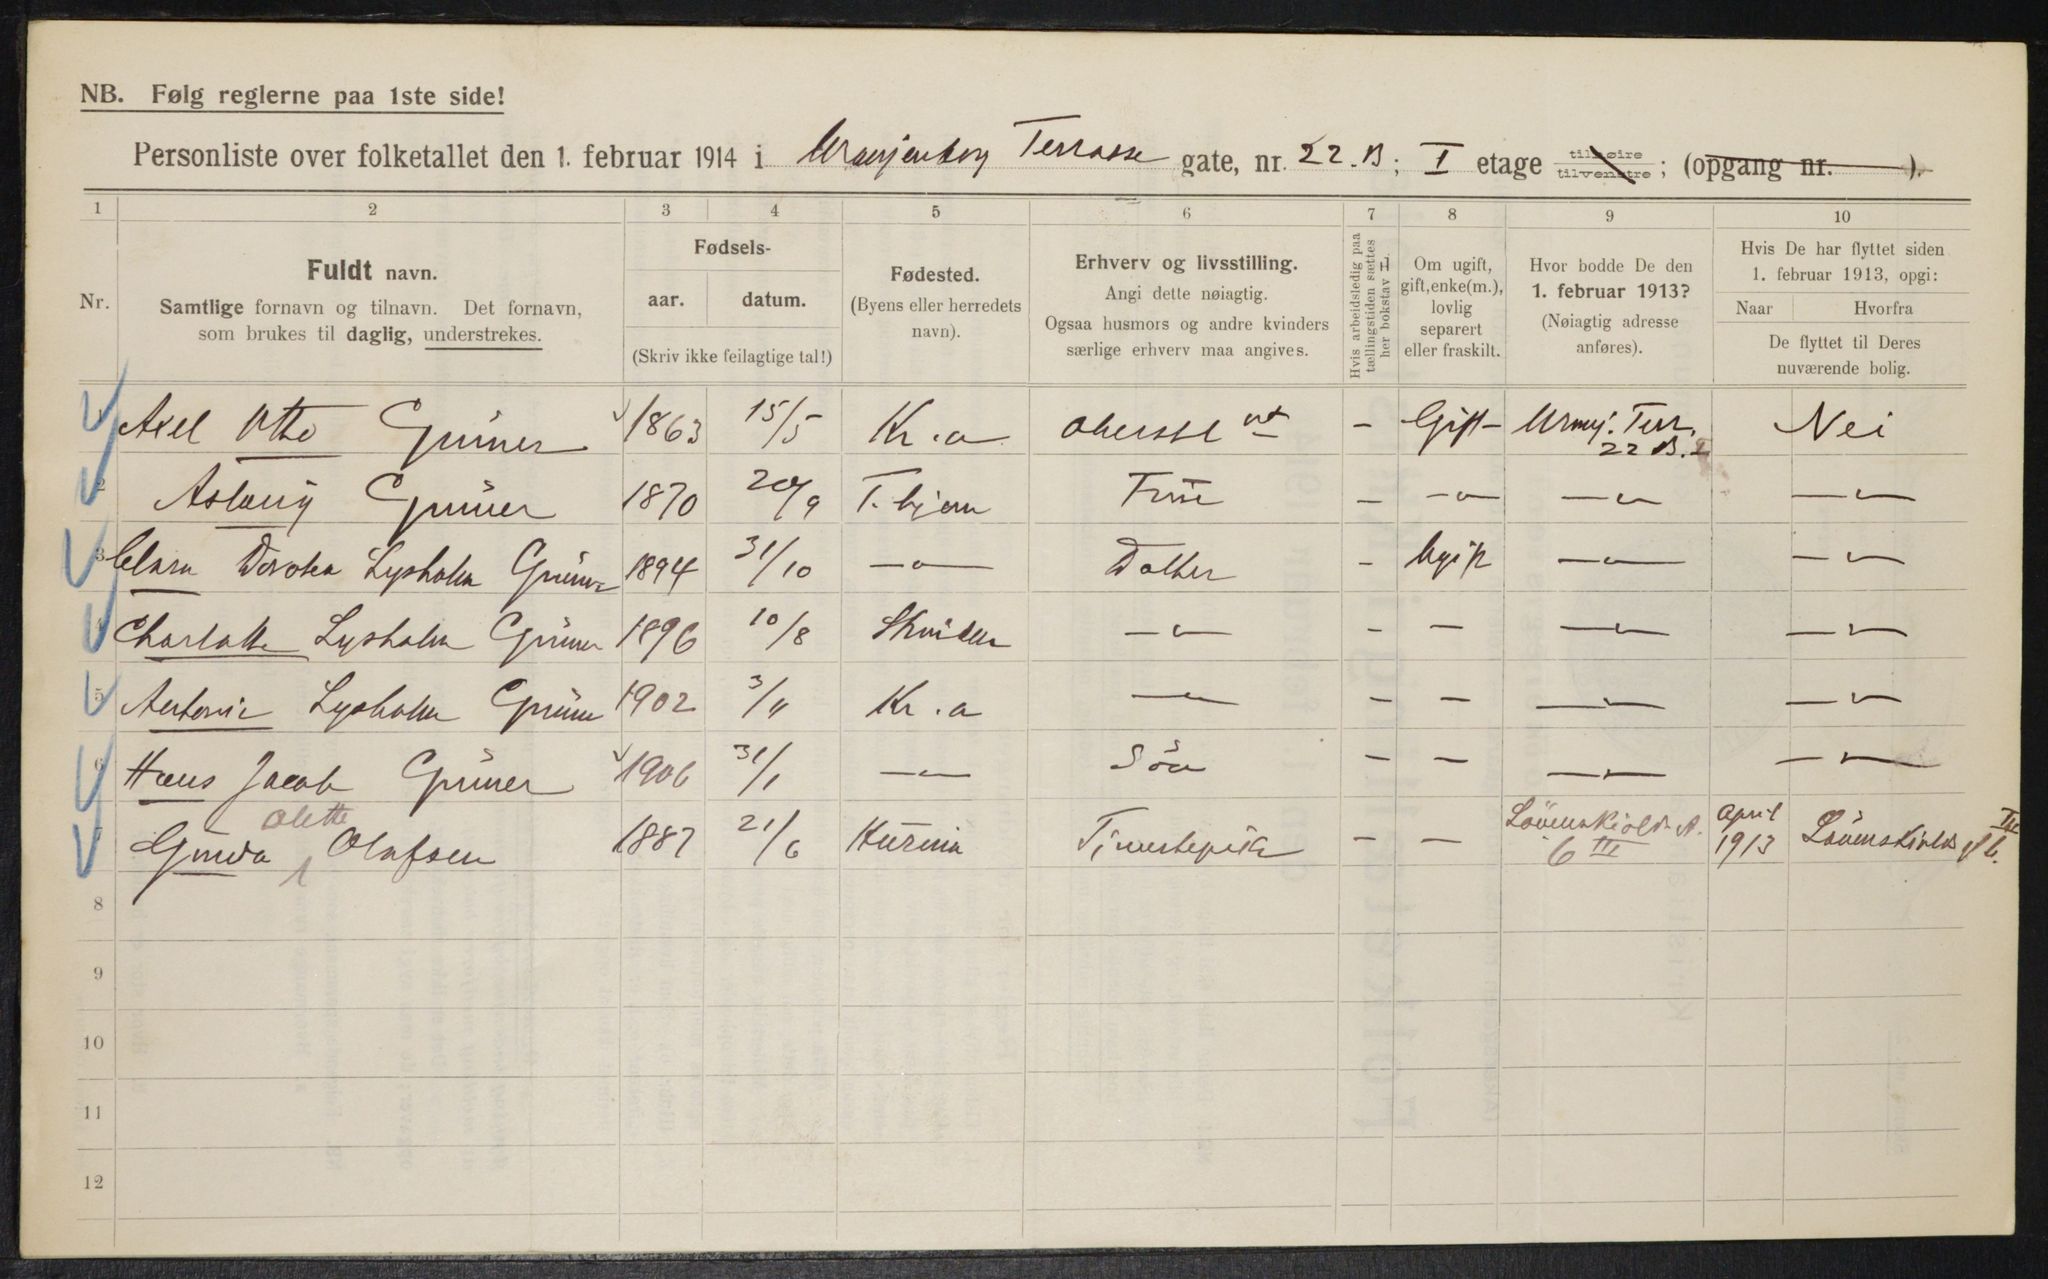 NB. Følg reglerne paa 1ste side!
Personliste over folketallet den 1. februar 1914 i Uranjenborg Terrasse gate, nr. 22.B; I etage tilhøire tilvenstre; (opgang nr. ).
1 2 3 4 5 6 7 8 9 10
Nr.
Fuldt navn.
Samtlige fornavn og tilnavn. Det fornavn,
som brukes til daglig, understrekes.
Fødsels-
aar. datum.
(Skriv ikke feilagtige tal!)
Fødested.
(Byens eller herredets
navn).
Erhverv og livsstilling.
Angi dette nøiagtig.
Ogsaa husmors og andre kvinders
særlige erhverv maa angives.
Hvis arbeidsledig paa
tællingstiden sættes
her bokstav L
Om ugift,
gift, enke(m.),
lovlig
separert
eller fraskilt.
Hvor bodde De den
1. februar 1913?
(Nøiagtig adresse
anføres).
Hvis De har flyttet siden
1. februar 1913, opgi:
Naar Hvorfra
De flyttet til Deres
nuværende bolig.
1 Axel Otto Grüner 1863 15/5 Kr.a Oberstl - Gift Urnj. Terr. 22 B. I Nei
2 Astrid Grüner 1870 T.hjem Frue - -"- -"- -"-
3 Clara Dorothea Lysholm Grüner 1894 31/10 -"- Datter - Ugift -"- -"-
4 Charlotte Lysholm Grüner 1896 10/8 -"- - - -"- -"-
5 Antonie Lysholm Grüner 1902 Kr.a -"- - - -"- -"-
6 Hans Jacob Grüner 1906 31/1 -"- Søn - - -"- -"-
7 Gunda Alette Olafsen 1887 21/6 Tjenestepike - - Lövenskiolds 6 III April 1913 Lövenskiolds
8
9
10
11
12